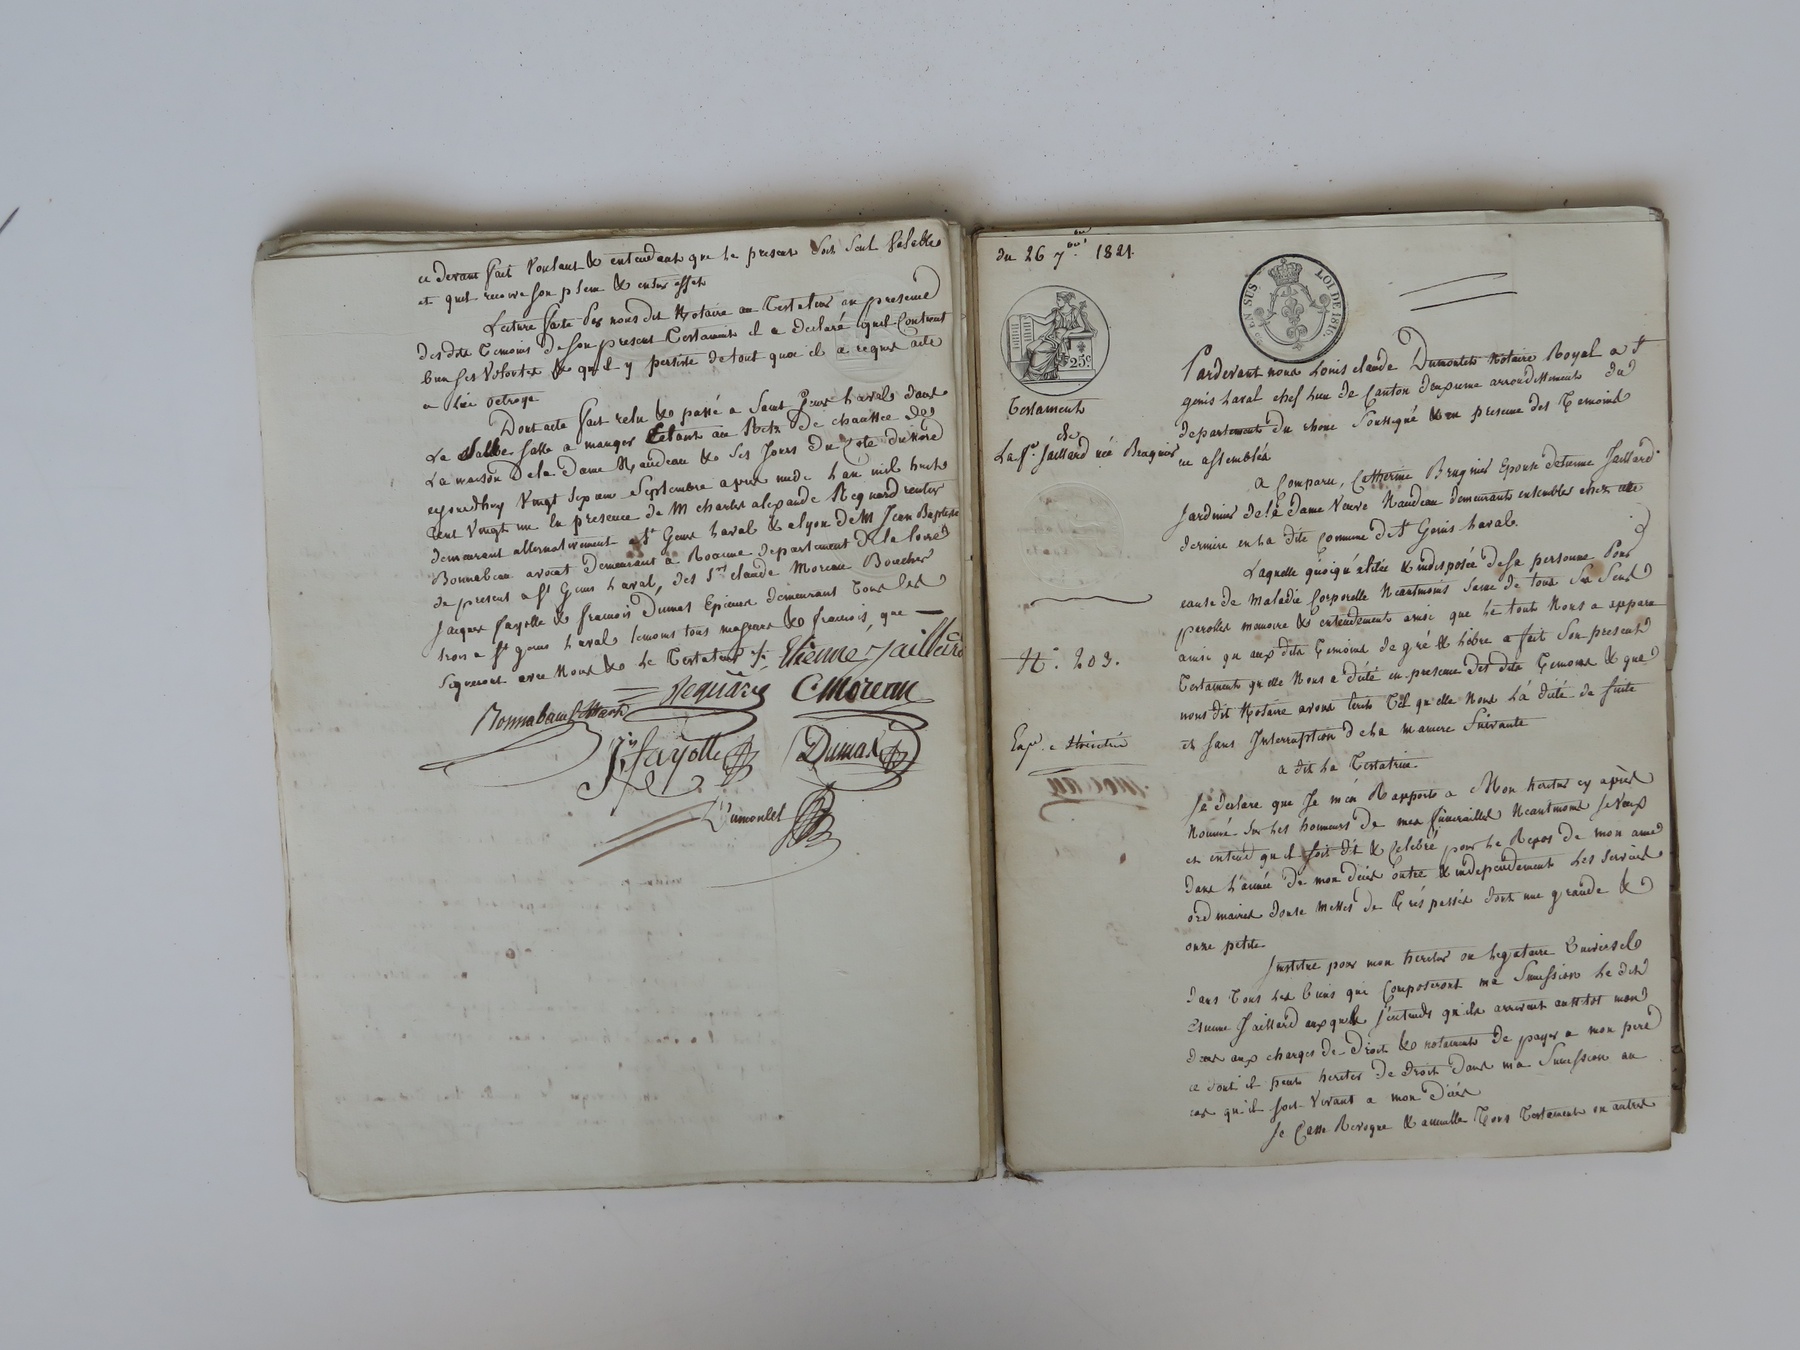 ce devant fait Voulant & entendant que le present soit seul Valable
et quil recoive son plein & entier effet
Lecture faite Par nous dit Notaire au Testateur en presence
des dits Temoins de son present Testament il a declaré quil Contient
bien ses Volontés & qu'il y persiste de tout quoi il a requis acte
a lui octroyé
Dont acte fait relu & passé a Saint Genis Laval dans
La Salle a manger Etant au Retz de chaussée de
La maison De la Dame Naudeau & ses Jours Du Coté du nord
cejourdhuy Vingt Six Septembre apres midi L'an mil huit
Cent Vingt un en presence de M charles alexandre Requard rentier
demeurant alternativement a St Genis Laval & a Lyon de M Jean Baptiste
Bonnabeau avocat demeurant a Roanne departement de la Loire
de present a St Genis Laval, des Srs Claude Moreau Boucher
Jacques fayolle & francois Dumas Epicier demeurant Tous les
trois a St Genis Laval temoins tous majeurs & francois, que
Signeront avec Nous & Le Testateur
Etienne Jaillard
Requard C Moreau
Bonnabeau
fayolle Dumas
Dumortet
du 26 7bre 1821.
EN SUS
LOI DE 1816
25c
Testament
de
La fe Jaillard née Brugnier
N° 203.
Pardevant nous Louis claude Dumortet Notaire Royal a St
genis Laval chef Lieu de Canton deuxieme arrondissement du
departement du rhone Soussigné & en presence des Temoins
ci assemblés
a Comparu, Catherine Brugnier Epouse d'etienne Jaillard
Jardinier de la Dame Veuve Naudeau demeurants ensembles chez cette
derniere en La dite Commune de St Genis Laval.
Laquelle quoiqu'alitée & indisposée de sa personne Pour
cause de Maladie Corporelle Neantmoins Saine de tous Ses Sens
paroles memoire & entendement ainsi que le tout Nous a apparu
ainsi qu'aux dits Temoins de gré & Libre a fait Son present
Testament qu'elle Nous a dicté en presence des dits Temoins & que
nous dit Notaire avons écrit Tel qu'elle Nous L'a dicté de suite
et sans Interruption de La maniere Suivante
a dit La Testatrice.
Je declare que Je m'en Rapporte a Mon heritier cy après
Nommé Sur Les honneurs de mes funerailles Neantmoins Je Veux
et entend qu'il soit dit & Celebré pour Le Repos de mon ame
dans L'année de mon décès outre & independament des services
ordinaires douze Messes de Trépassés dont une grande &
onze petite.
Institue pour mon heritier ou Legataire Universel
dans Tous Les biens qui Composeront ma Succession Le dit
Etienne Jaillard auxquels J'entends qu'ils arrivent aussitot mon
deces aux charges de Droit & notament de payer a mon pere
ce dont il peut heriter de droit dans ma Succession au
cas qu'il soit Vivant a mon décès
Je Casse Revoque & annulle Tous Testaments ou autres